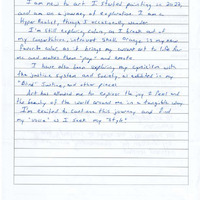 I am new to art. I started painting in 2022,
and am on a journey of exploration. I am a
Hyper Realist, though I occasionally wander.
I'm still exploring color, as I break out of
my conservative, introvert shell. Orange is my new
favorite color, as it brings my current art to life for
me and makes them "pop" and
I have also been exploring my skepticism with
the justice system and society, as exhibited in my
"Blind" Justice, and other pieces.
Art has allowed me to express the joy I feel and
the beauty of the world around me in a tangible way.
I'm excited to continue this journey and find
my "voice" as I seek my "style"